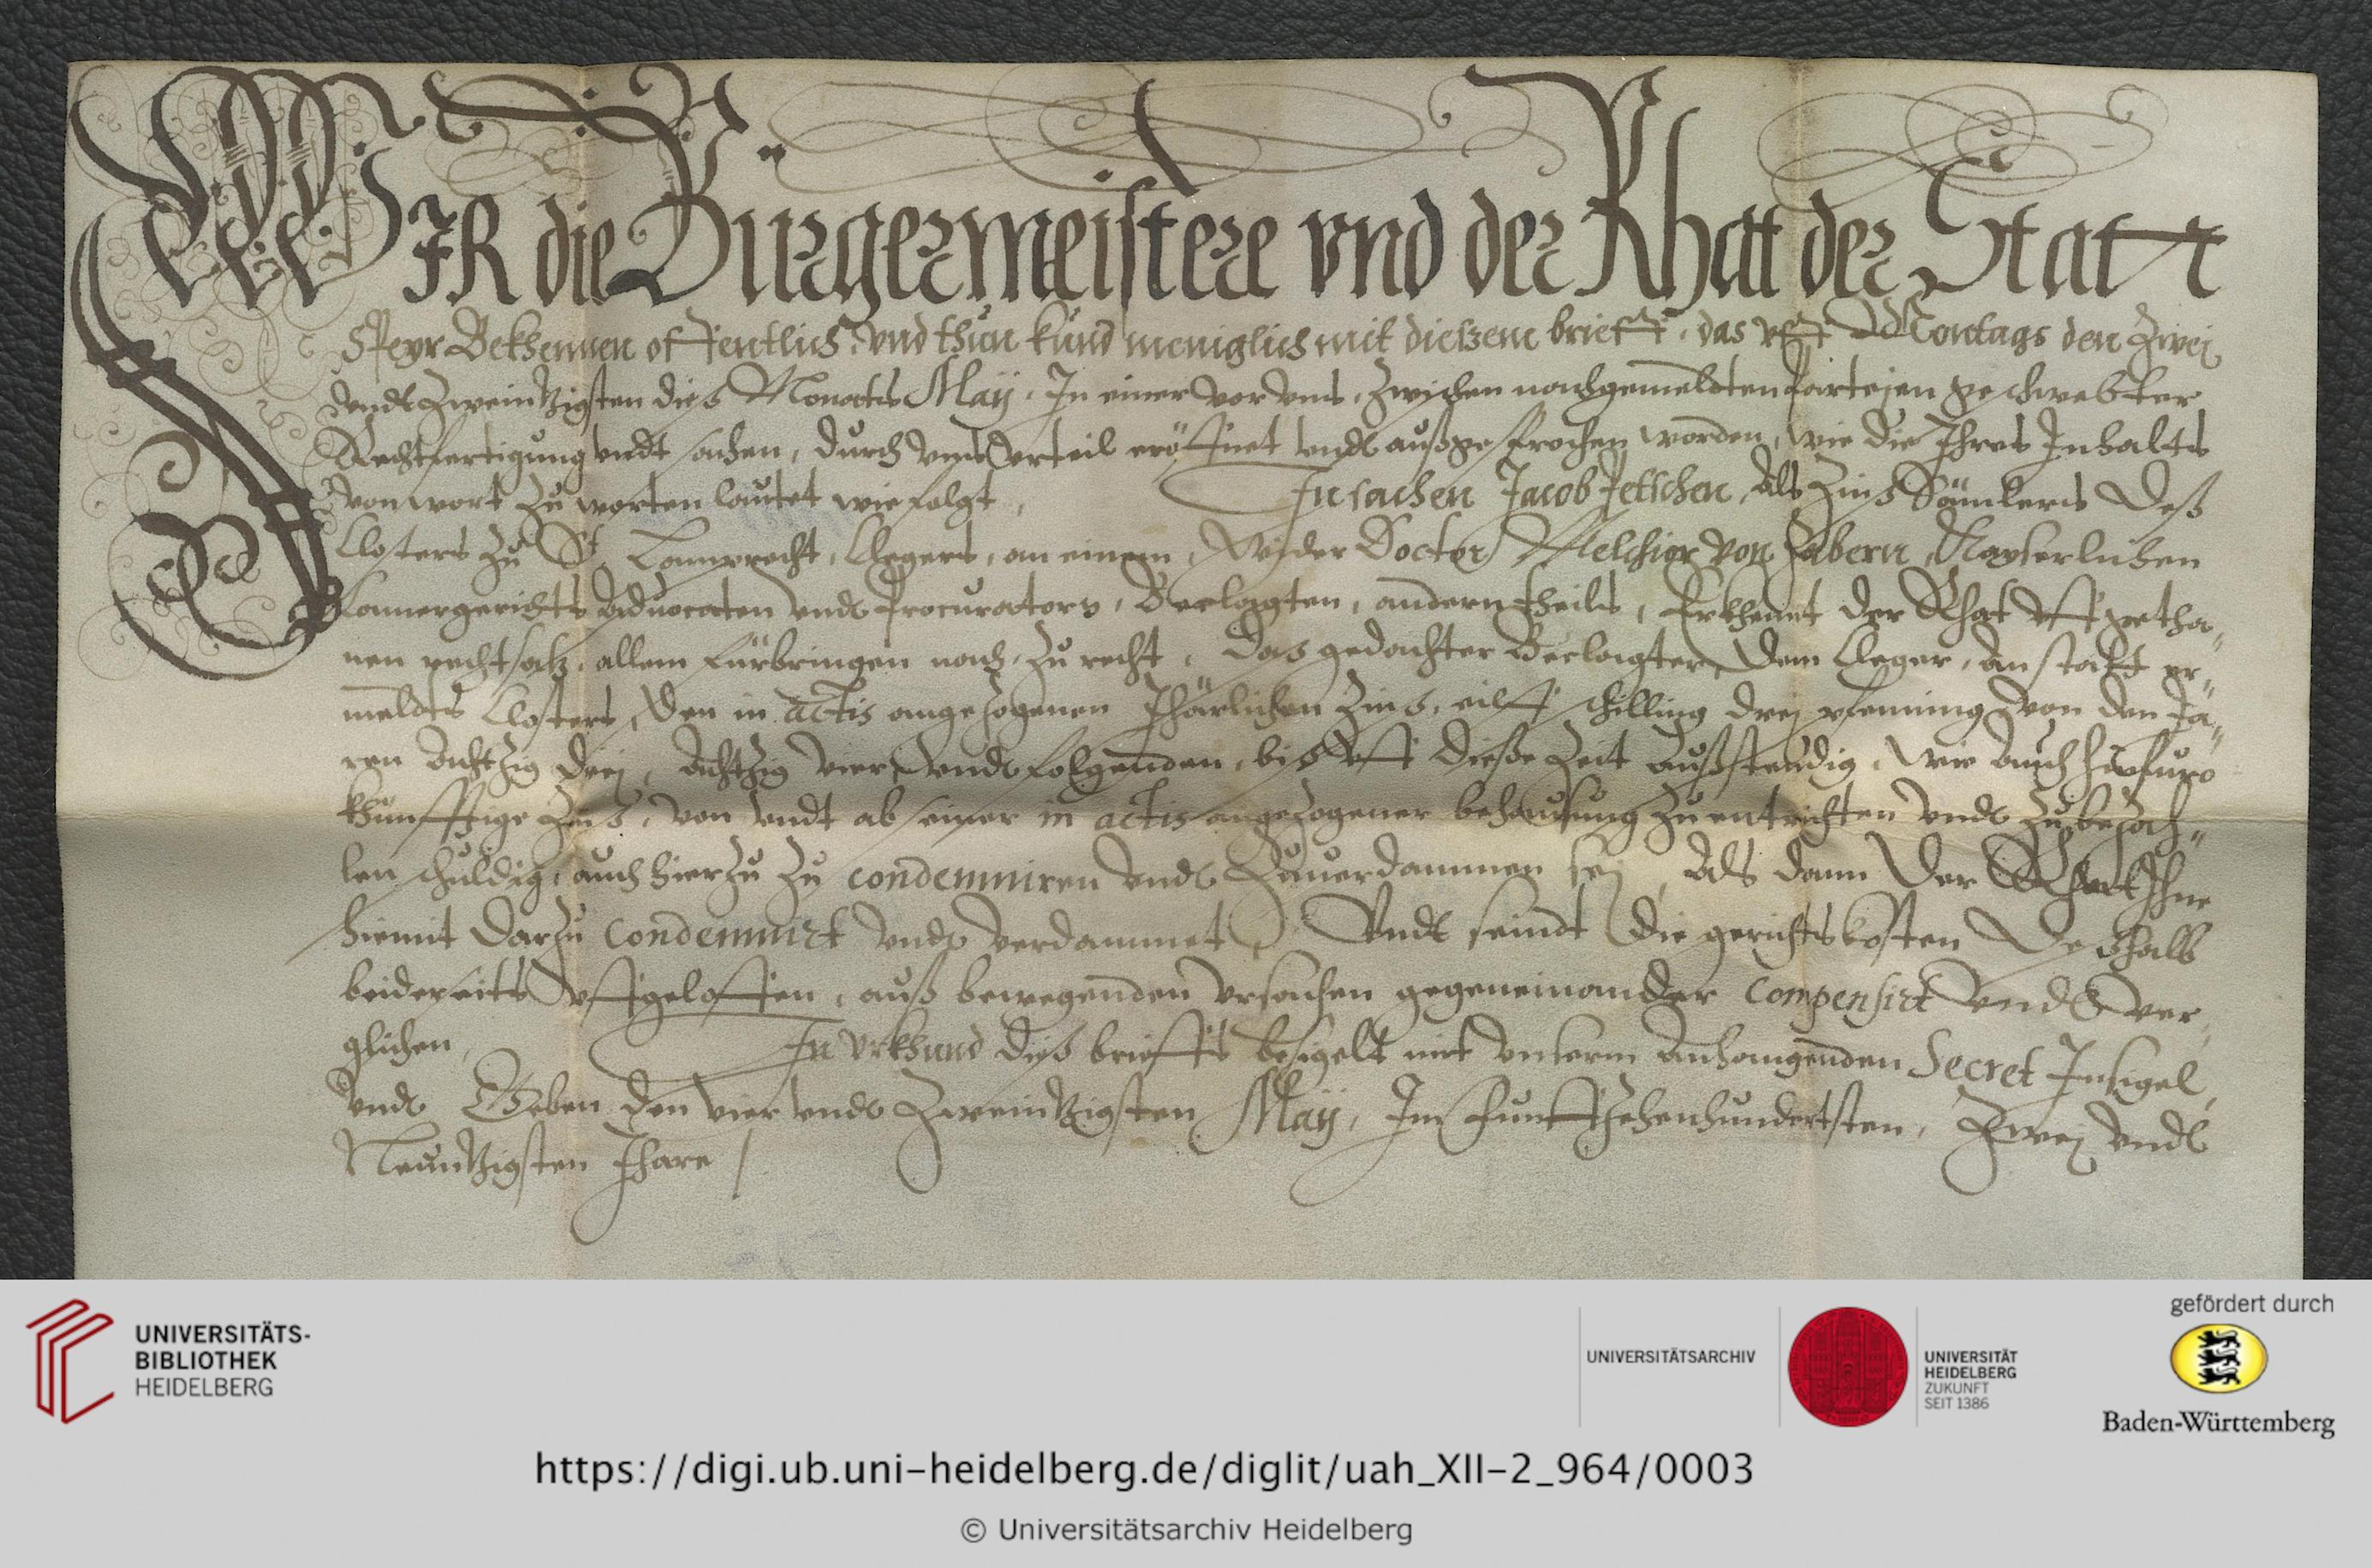 WIR die Bürgermeistere vnd der Rhatt der Statt
Speyr Bekhennen offentlich, vnd thun kund meniglich mit dieszem brieff, das vff Montags den Zwei
vndt Zweintzigsten dies Monats Maÿ, In einer vor vns, zwischen nachgemeldten Parteien geschwebter
Rechtfertigung vndt sachen, durch vns Vrteil eröffnet vndt außgesprochen worden, wie die Ihres Inhalts
von wort zu worten lautet wie folgt,
In sachen Jacob Jetschen, als Zins Sämlers deß
Closters zu St. Lamprecht, Clegers, an einem, Wider Doctor Melchior von Zabern, Kayserlichen
Camergerichts Aduocaten vndt Procuratorn, Beclagten, andern theils, Erkhennt der Rhat vff getha„
nen rechtsatz, allem fürbringen nach, zu recht, Das gedachter Beclagter, dem Cleger, anstatt er„
meldts Closters, den in actis angezogenen Jhärlichen Zins, eilff schilling drei pfenning von den Ja„
ren achtzig drei, achtzig vier, vndt folgenden, bis vff diesze Zeit außstendig, wie auch hinfuro
khünfftige Zins, von vndt ab seiner in actis angezogener behausung zu entrichten vndt zu bezah„
len schuldig, auch hierzu zu condemniren vndt zuuerdammen sei, Als dann der Rhatt Ihne
hiemit darzu condemnirt vndt verdammet, Vndt seindt die gerichts kosten deshalb
beiderseits vffgeloffen, auß bewegenden vrsachen gegeneinander compensirt vndt ver„
glichen,
In Vrkhund dies brieffs besigelt mit vnserm anhangenden Secret Insigel,
vndt Geben den vier vndt Zweintzigsten Maÿ, Im Funffzehenhundertsten, Zwei vndt
Neuntzigsten Jhare /
UNIVERSITÄTS-
BIBLIOTHEK
HEIDELBERG
UNIVERSITÄTSARCHIV
UNIVERSITÄT
HEIDELBERG
ZUKUNFT
SEIT 1386
gefördert durch
Baden-Württemberg
https://digi.ub.uni-heidelberg.de/diglit/uah_XII-2_964/0003
© Universitätsarchiv Heidelberg